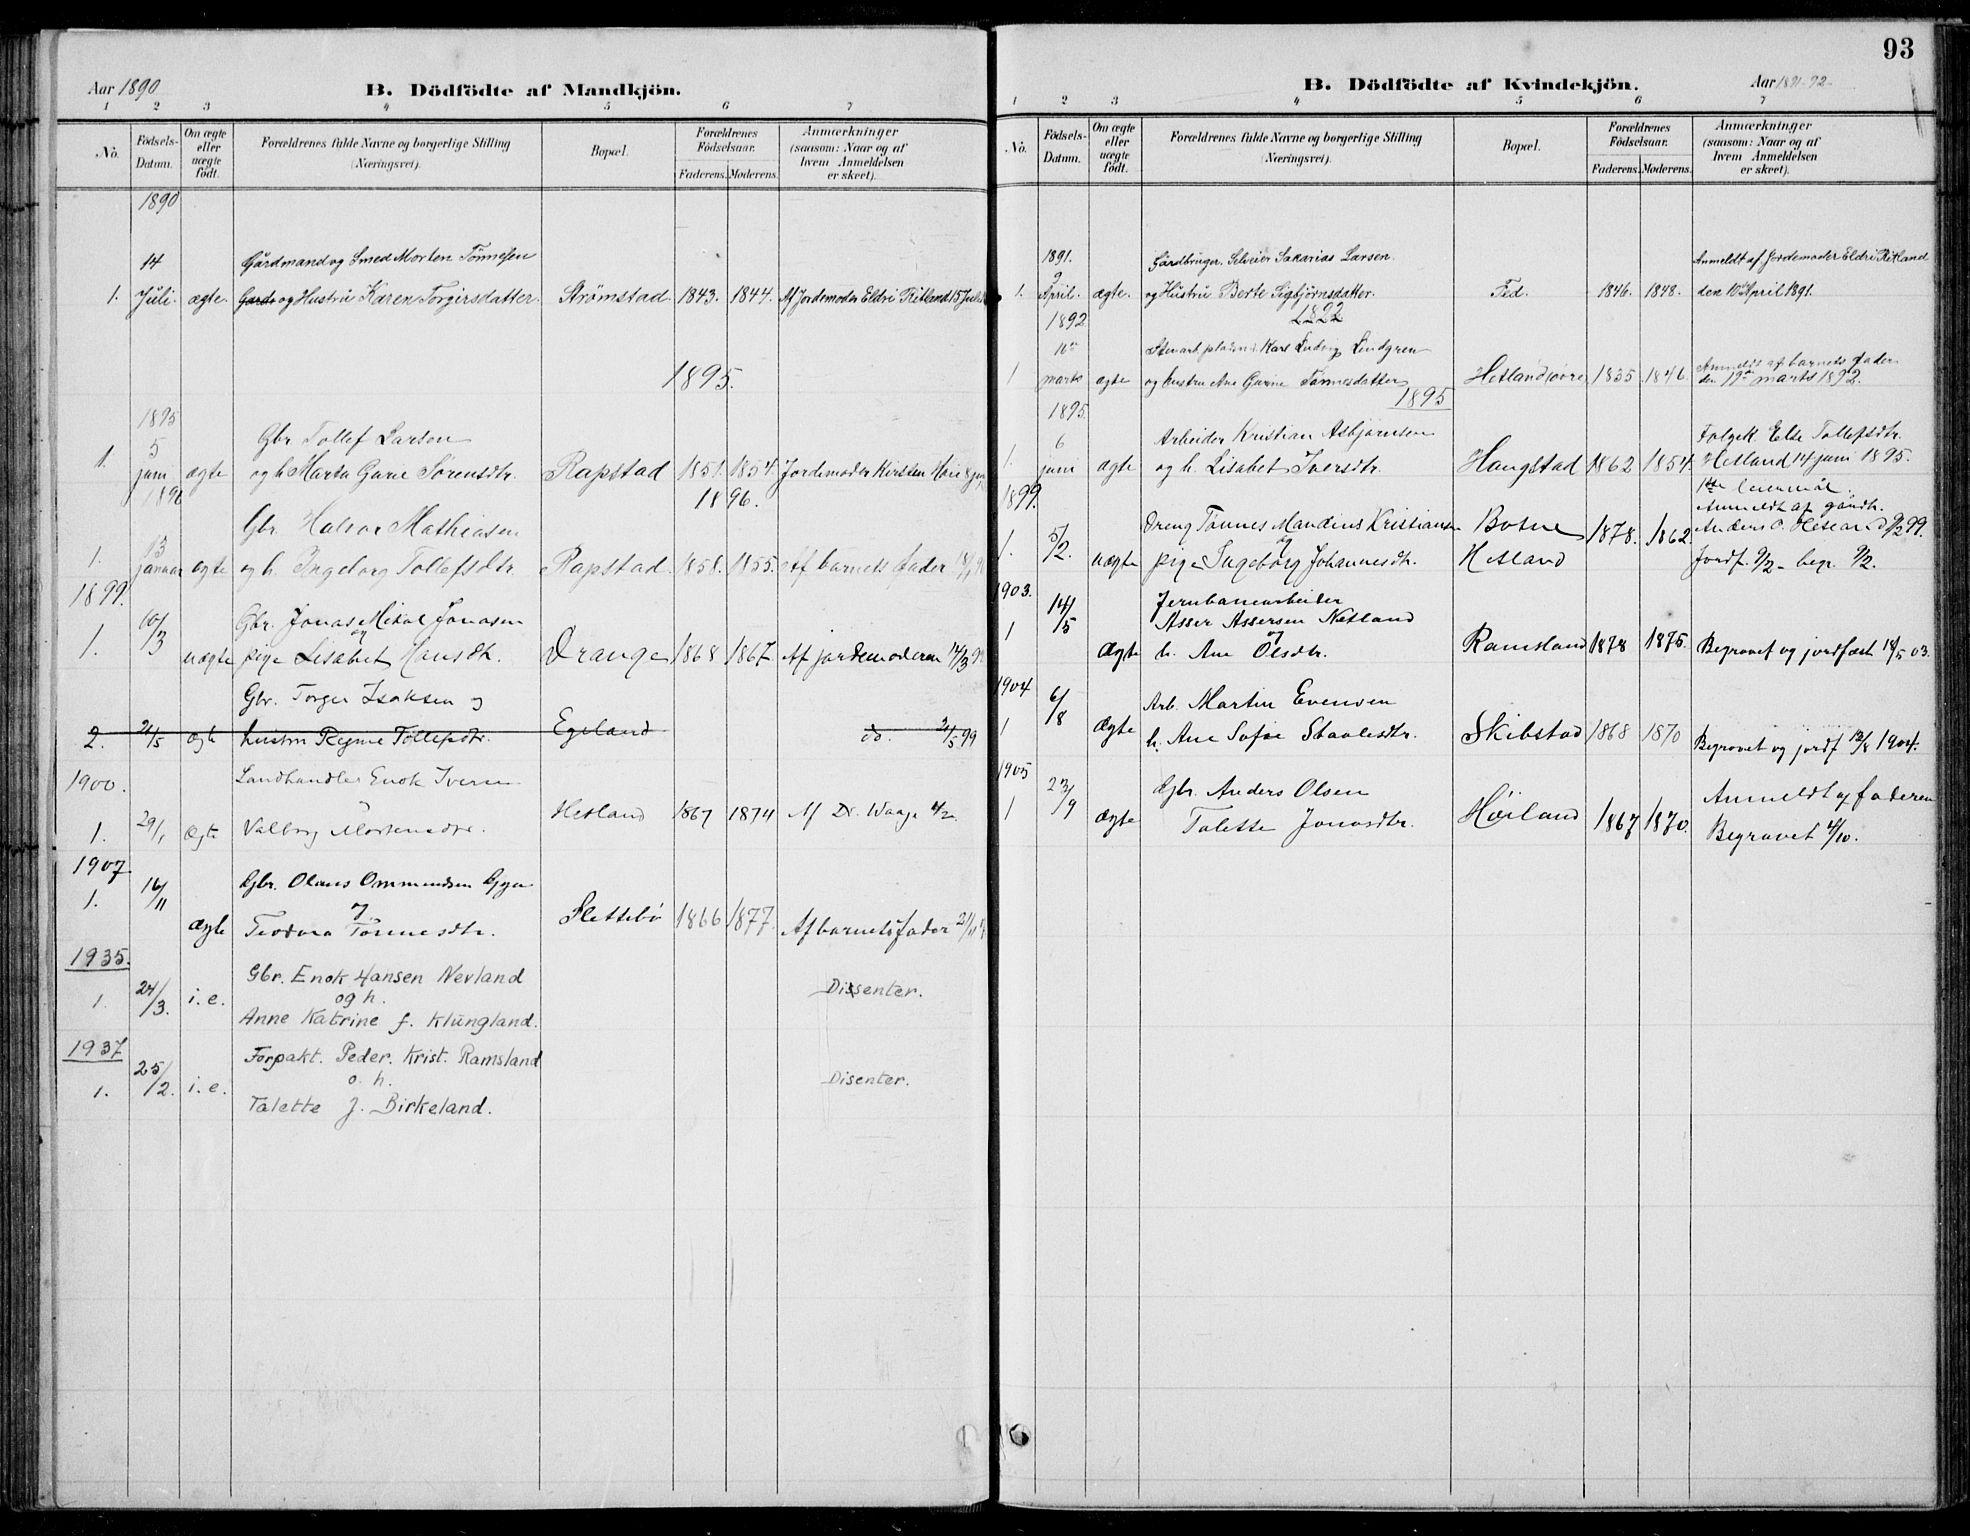 Aar 1890
B. Dödfödte af Mandkjön.
1 2 3 4 5 6 7
No.
Födsels-Datum.
Om ægte eller uægte födt.
Forældrenes fulde Navne og borgerlige Stilling (Næringsvei).
Bopæl.
Forældrenes Födselsaar.
Faderens. Moderens.
Anmærkninger (saasom: Naar og af hvem Anmeldelsen er skeet).
1890
14 Gårdmand og Smed Morten Tønnesen
1. Juli. ægte. og Hustru Karen Torgirsdatter. Strømstad. 1843. 1844. Af Jordemoder Eldri Ritland 15 Juli
1895.
1895
5 Gbr Tollef Larsen
1. juni ægte og h. Marta Garie Sørensdtr. Rapstad 1851. 1854. Jordemoder Kirsten
1896 1896.
Gbr. Halvor Mathiasen
1. 13 januar ægte og h. Ingeborg Tollefsdtr. Rapstad. 1858. 1855. Af barnets fader
1899.
10/3 Gbr. Jonas Mikal Jonasen
1. uægte og pige Lisabet Hansdtr. Drange 1868 1867. Af jordemoderen 14/3 99
Gbr. Torger Isaksen og
2. 21/5 ægte hustru Regine Tollefsdtr. Egeland do. 21/5 99
1900. Landhandler Enok Iversen
1. 29/1 ægte Valborg Mortensdtr. Hetland 1867 1874 Af Dr. Waage 4/2
1907
1. 16/11 Gbr. Olaus Ommundsen Gya
ægte og Teodora Tønnesdtr. Slettebø 1866 1877. Af barnets fader 21/11
1935.
Gbr. Enok Hansen Nevland
1. 24/3. i.e. og h. Disenter.
Anne Katrine f. Klungland.
1937
Forpakt. Peder. Krist. Ramsland
1. 25/2. i.e. o. h. Disenter.
Talette J. Birkeland.
93
B. Dödfödte af Kvindekjön.
Aar 1891-92
1 2 3 4 5 6 7
No.
Födsels-Datum.
Om ægte eller uægte födt.
Forældrenes fulde Navne og borgerlige Stilling (Næringsvei).
Bopæl.
Forældrenes Födselsaar.
Faderens. Moderens.
Anmærkninger (saasom: Naar og af hvem Anmeldelsen er skeet).
1891.
9 Gårdbruger, Selveier Sakarias Larsen Anmeldt af Jordemoder Eldri Ritland
1. April. ægte. og Hustru Berte Sigbjörnsdatter. Fed. 1846. 1848. den 10de April 1891.
1892 1892
Karl Ludvig Lindgren Anmeldt af barnets fader
1 marts ægte og hustru Ane Garine Tønnesdatter Hetland øvre 1835 1846. den 19de marts 1892.
1895. 1895
6 Arbeider Kristian Asbjørnsen Else Tollefsdtr.
1. juni ægte og h. Lisabet Iversdtr. Haugstad 1862 1854. Hetland 14 juni 1895.
1899. 1ste leiermål.
Anmeldt af gårdbr.
5/2. Dreng Tønnes Mandius Kristiansen Bosne 1878. 1862. 9/2 99.
1. uægte og pige Ingeborg Johannesdtr. Hetland Jordf. 9/2 - begr. 9/2.
1903. Jernbanearbeider
14/5 Asser Assersen Netland
1 Ægte og h. Ane Olsdtr. Ramsland 1878 1875. Begravet og jordfæst 18/5 03.
1904
6/8 Arb. Martin Evensen
1 Ægte h. Ane Sofie Staalesdtr. Skibstad 1868 1870 Begravet og jordf 13/8 1904.
1905
23/9 Gbr. Anders Olsen Anmeldt af faderen
1 Ægte Talette Jonasdtr. Höiland 1867 1870. Begravet 4/10.